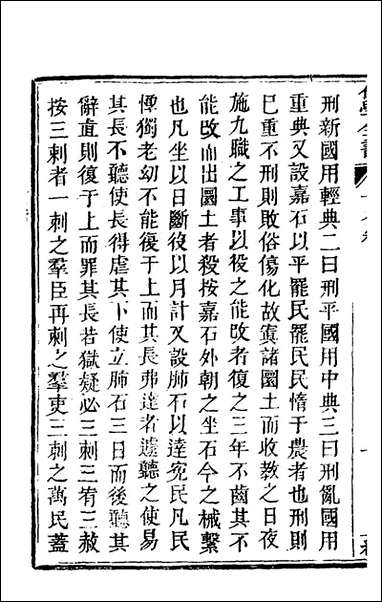 刑新國用輕典二曰刑平國用中典三曰刑亂國用
重典又設嘉石以平罷民罷民民惰于農者也刑則
已重不刑則敗俗傷化故寘諸圜土而收教之日夜
施九職之工事以役之能改者復之三年不齒其不
能改而出圜土者殺按嘉石外朝之坐石今之械繫
也凡坐以日斷役以月計又設肺石以達寃民凡民
惸獨老幼不能復于上而其長弗達者遽聽之使易
其長不聽使長得虐其下使立肺石三日而後聽其
辭直則復于上而罪其長若獄疑必三刺三宥三赦
按三刺者一刺之羣臣再刺之羣吏三刺之萬民蓋